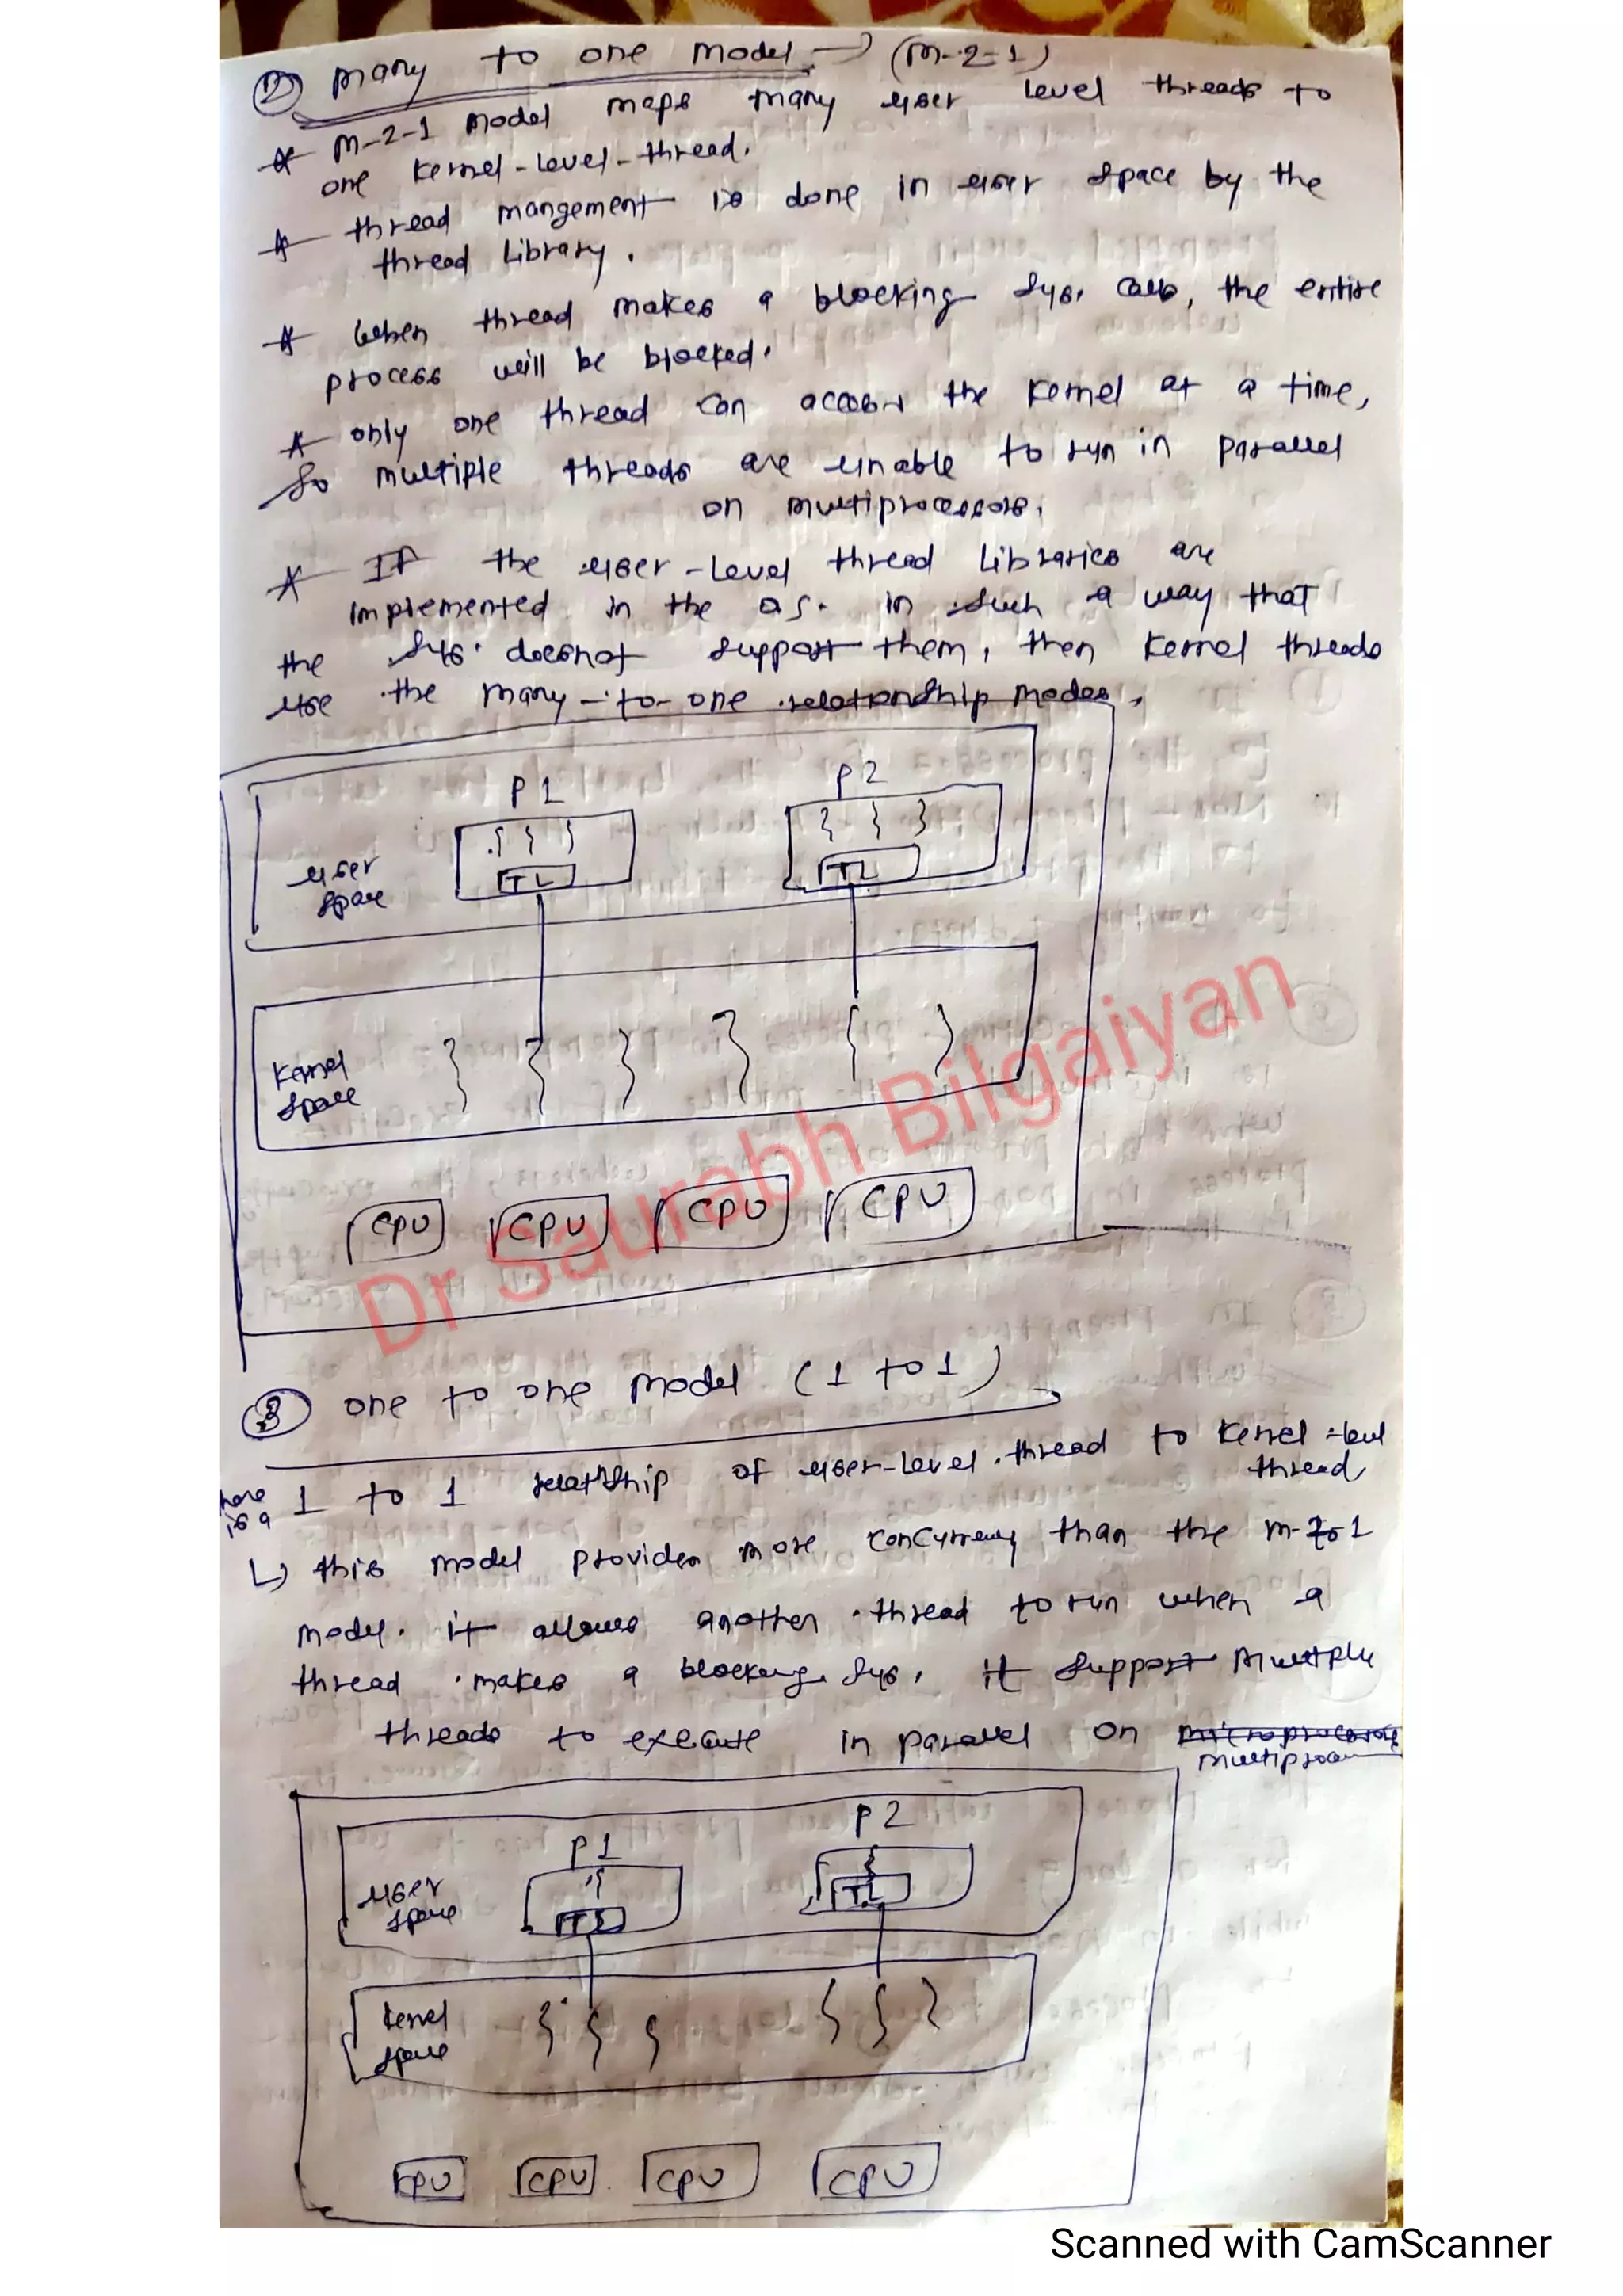 ② Many to one Model → (M-2-1)
* M-2-1 Model maps many user level threads to
one Kernel-Level-thread.
* thread mangement is done in user space by the
thread Library.
* When thread makes a blocking sys. call, the entire
process will be blocked.
* only one thread can access the Kernel at a time,
So multiple threads are unable to run in parallel
on multiprocessors.
* If the user-Level thread Libraries are
implemented in the O.S. in such a way that
the sys. doesnot support them, then Kernel threads
use the many-to-one relationship modes.
P1 P2
TL TL
user
space
Kernel
space
CPU CPU CPU CPU
Dr Saurabh Bilgaiyan
③ one to one Model (1 to 1)
here is a 1 to 1 relatnship of user-Level thread to Kernel-level
thread,
↳ this model provides more concurrency than the M-to-1
model. it allows another thread to run when a
thread makes a blocking sys. it support Multiple
threads to execute in parallel on microprocessors
multiproce
P1 P2
TL
user
space
Kernel
space
CPU CPU CPU CPU
Scanned with CamScanner